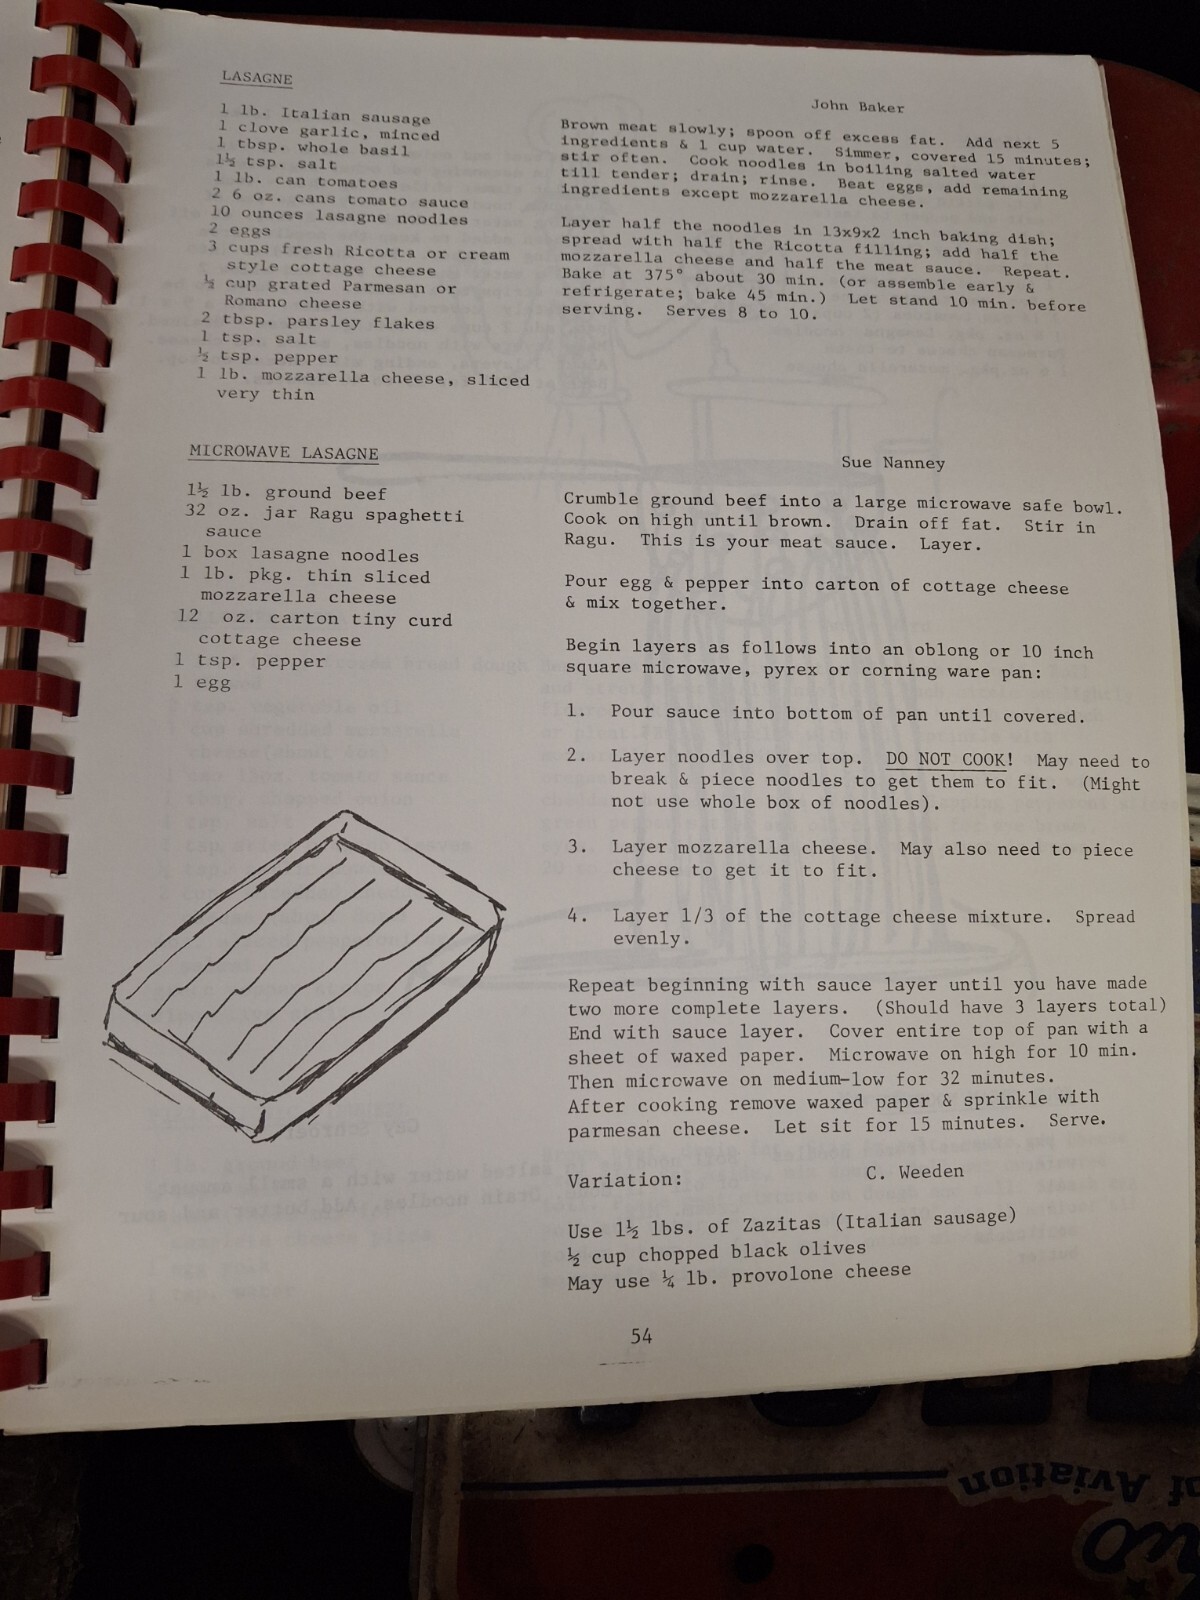 LASAGNE
John Baker
1 lb. Italian sausage
1 clove garlic, minced
1 tbsp. whole basil
1½ tsp. salt
1 lb. can tomatoes
2 6 oz. cans tomato sauce
10 ounces lasagne noodles
2 eggs
3 cups fresh Ricotta or cream
style cottage cheese
½ cup grated Parmesan or
Romano cheese
2 tbsp. parsley flakes
1 tsp. salt
½ tsp. pepper
1 lb. mozzarella cheese, sliced
very thin
Brown meat slowly; spoon off excess fat. Add next 5
ingredients & 1 cup water. Simmer, covered 15 minutes;
stir often. Cook noodles in boiling salted water
till tender; drain; rinse. Beat eggs, add remaining
ingredients except mozzarella cheese.
Layer half the noodles in 13x9x2 inch baking dish;
spread with half the Ricotta filling; add half the
mozzarella cheese and half the meat sauce. Repeat.
Bake at 375° about 30 min. (or assemble early &
refrigerate; bake 45 min.) Let stand 10 min. before
serving. Serves 8 to 10.
MICROWAVE LASAGNE
Sue Nanney
1½ lb. ground beef
32 oz. jar Ragu spaghetti
sauce
1 box lasagne noodles
1 lb. pkg. thin sliced
mozzarella cheese
12 oz. carton tiny curd
cottage cheese
1 tsp. pepper
1 egg
Crumble ground beef into a large microwave safe bowl.
Cook on high until brown. Drain off fat. Stir in
Ragu. This is your meat sauce. Layer.
Pour egg & pepper into carton of cottage cheese
& mix together.
Begin layers as follows into an oblong or 10 inch
square microwave, pyrex or corning ware pan:
1. Pour sauce into bottom of pan until covered.
2. Layer noodles over top. DO NOT COOK! May need to
break & piece noodles to get them to fit. (Might
not use whole box of noodles).
3. Layer mozzarella cheese. May also need to piece
cheese to get it to fit.
4. Layer 1/3 of the cottage cheese mixture. Spread
evenly.
Repeat beginning with sauce layer until you have made
two more complete layers. (Should have 3 layers total)
End with sauce layer. Cover entire top of pan with a
sheet of waxed paper. Microwave on high for 10 min.
Then microwave on medium-low for 32 minutes.
After cooking remove waxed paper & sprinkle with
parmesan cheese. Let sit for 15 minutes. Serve.
Variation: C. Weeden
Use 1½ lbs. of Zazitas (Italian sausage)
½ cup chopped black olives
May use ¼ lb. provolone cheese
54
of Aviation